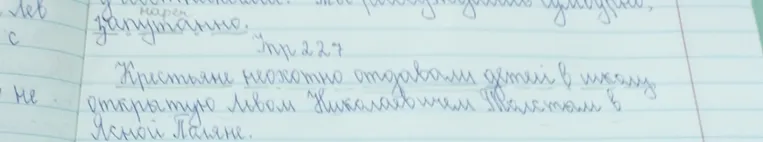 Лев
нареч
с запутанно.
Упр 227
Крестьяне неохотно отдавали детей в школу,
не открытую Львом Николаевичем Толстым в
Ясной Поляне.